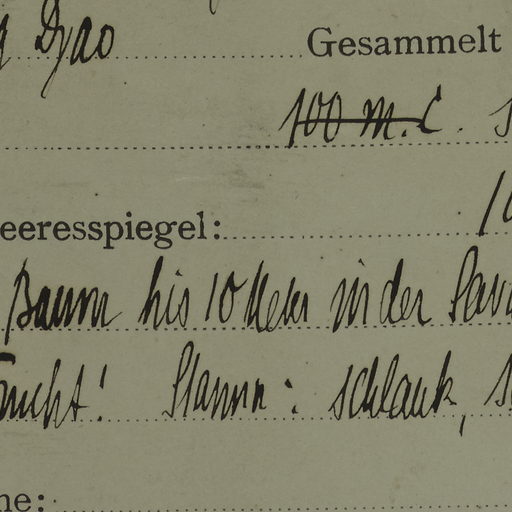 g Djao
Gesammelt
100 m. C. s
eeresspiegel: 10
Baum bis 10 Meter in der Sava
Frucht! Stamm: schlank, s
ne: